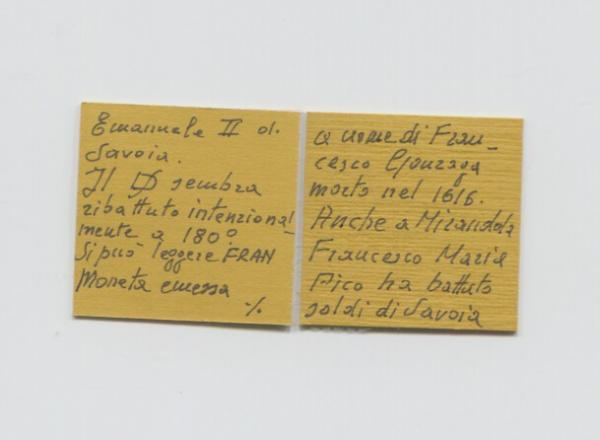 Emanuele II di
Savoia.
Il D sembra
ribattuto intenzional
mente a 180°
Si può leggere FRAN
Moneta emessa
%
a nome di Fran_
cesco Gonzaga
morto nel 1616.
Anche a Mirandola
Francesco Maria
Pico ha battuto
soldi di Savoia